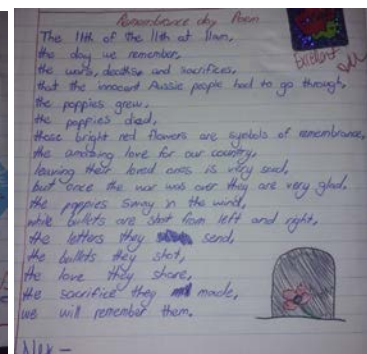 Remembrance day Poem
The 11th of the 11th at 11am,
the day we remember,
the wars, deaths and sacrifices,
that the innocent Aussie people had to go through,
the poppies grew,
the poppies died,
those bright red flowers are symbols of remembrance,
the amazing love for our country,
leaving their loved ones is very sad,
but once the war was over they are very glad,
the poppies sway in the wind,
while bullets are shot from left and right,
the letters they send,
the bullets they shot,
the love they share,
the sacrifice they made,
we will remember them.
Excellent